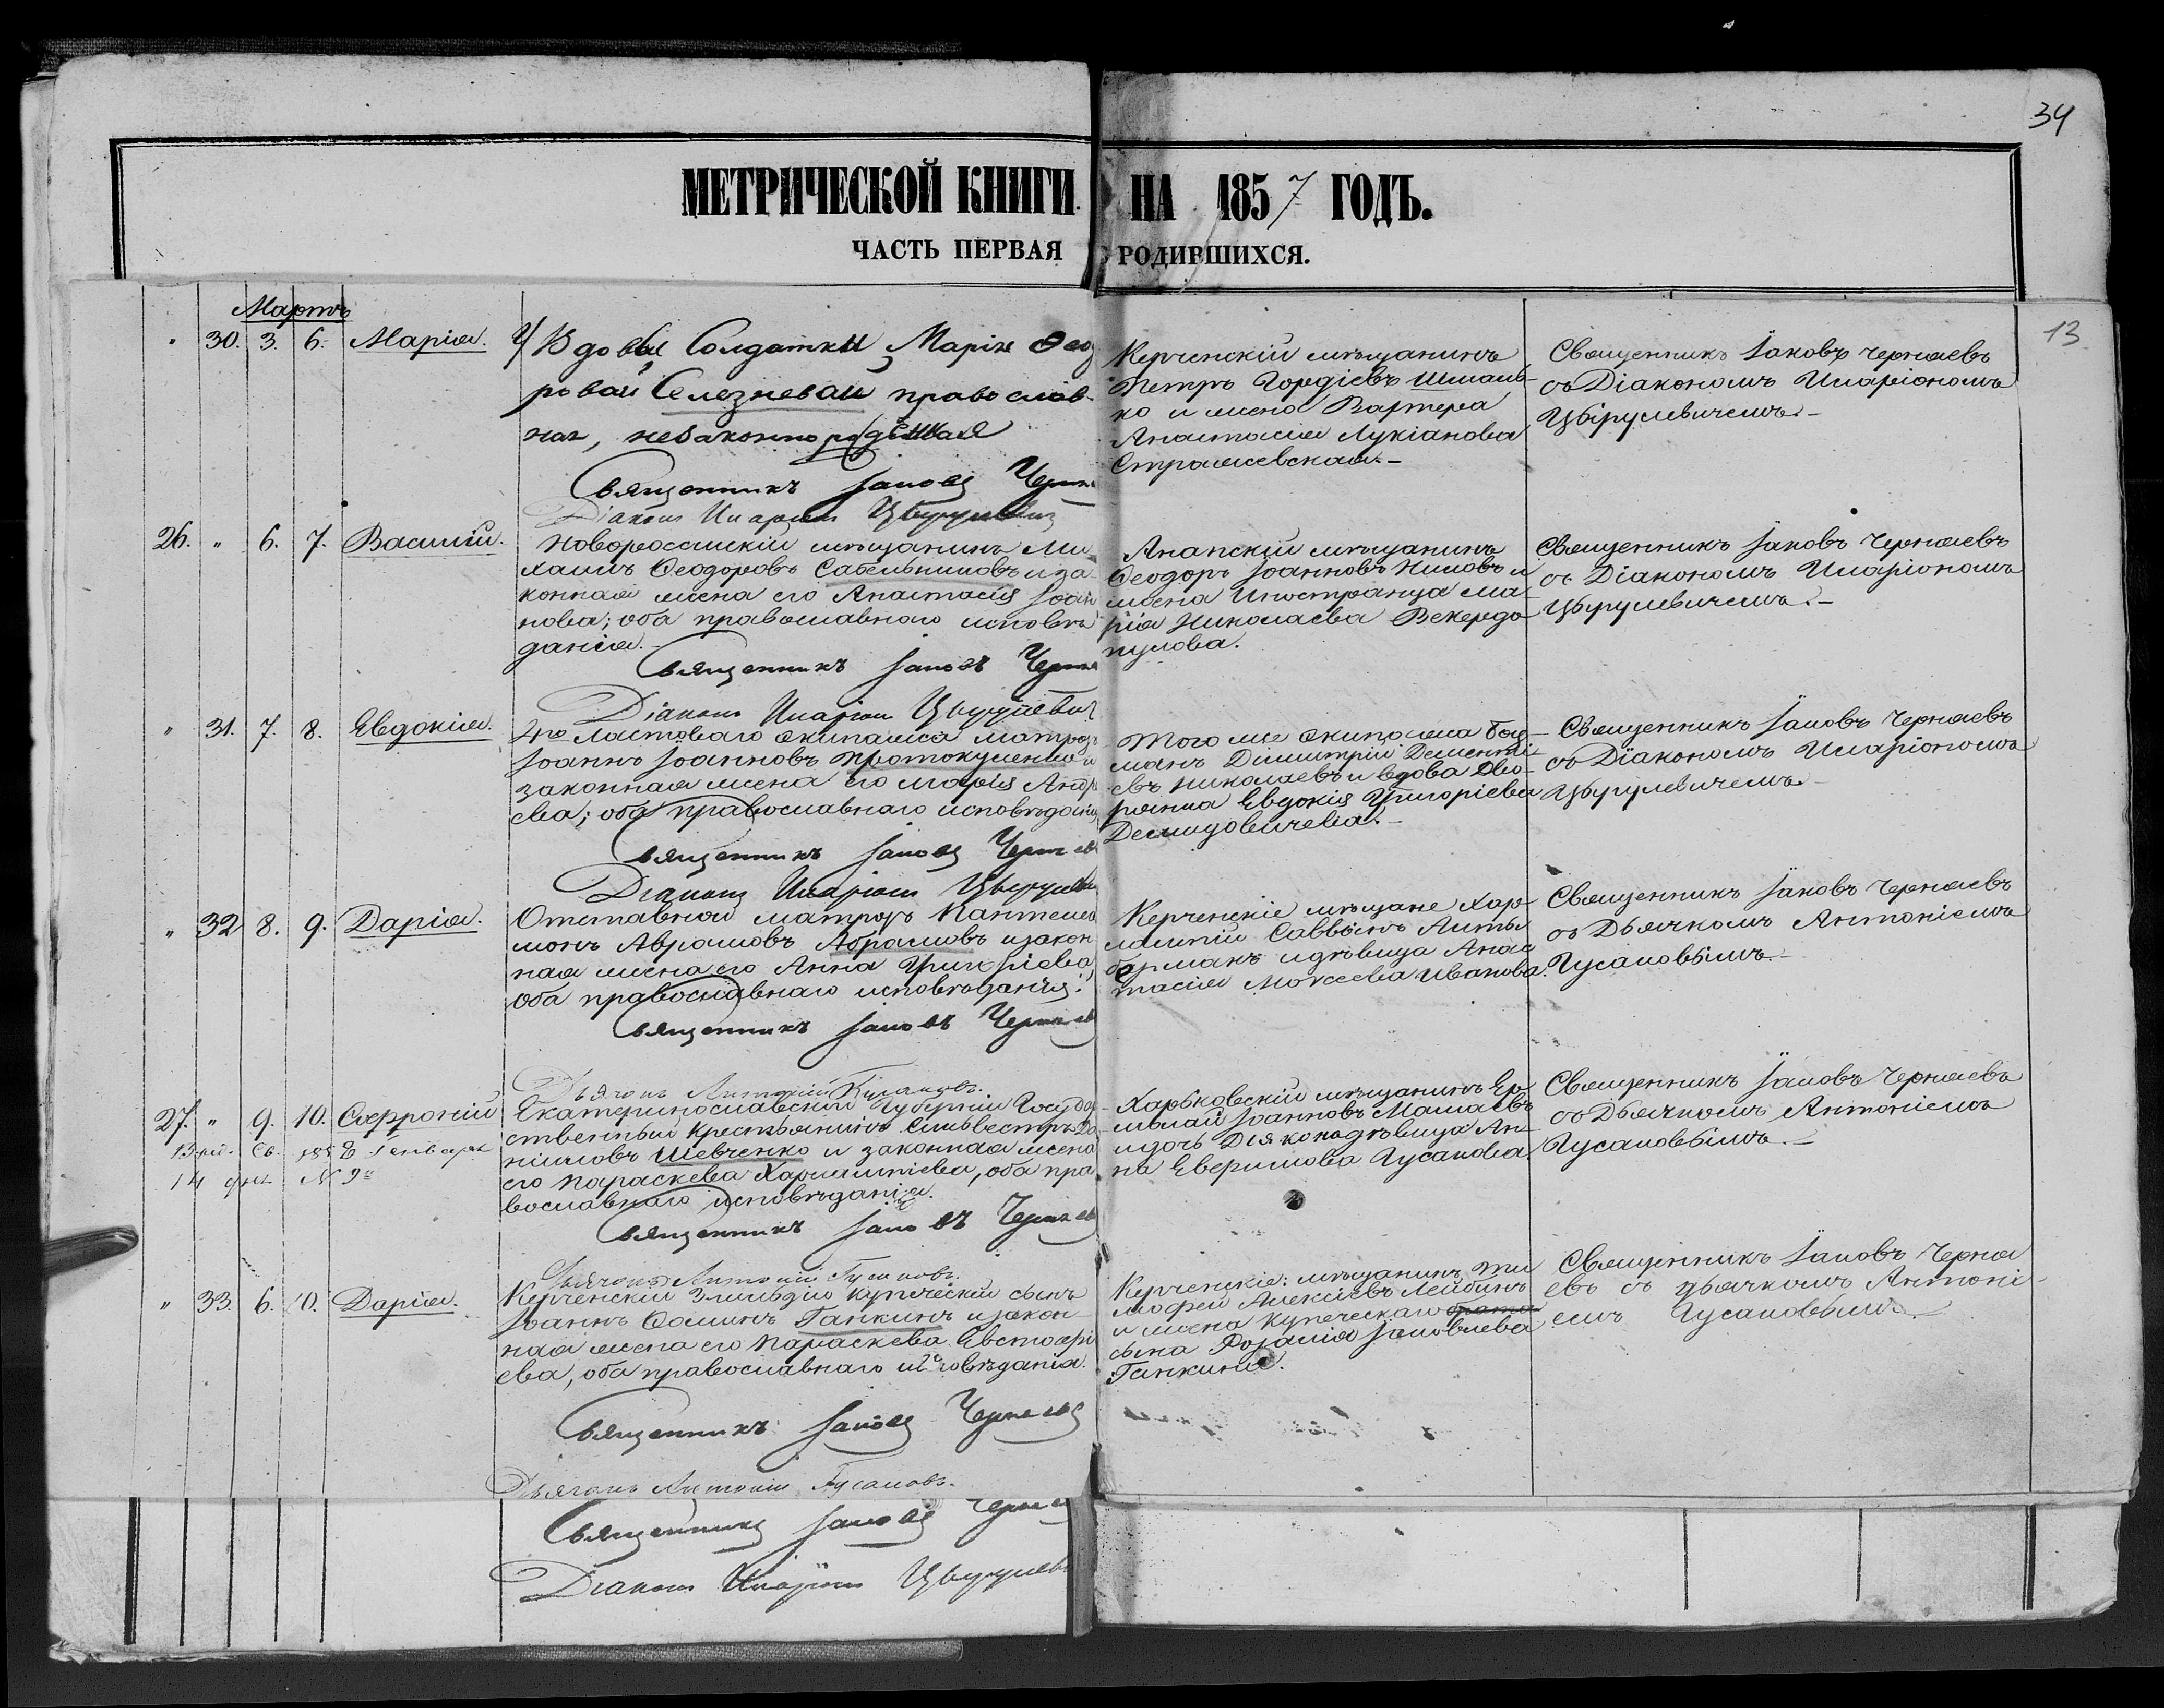 34
МЕТРИЧЕСКОЙ КНИГИ НА 1857 ГОДЪ.
ЧАСТЬ ПЕРВАЯ РОДИВШИХСЯ.
13
Мартъ
" 30. 3. 6. Марія.
Вдовы Солдатки Маріи Ѳео
ровой Селезневой православ-
ная, незаконнорожденная
Священникъ Іаковъ Черна
Діаконъ Иларіонъ Цырулевичъ
Керченскій мѣщанинъ
Петръ Гордіевъ Шмань-
ко и жена
Анастасія Лукіанова
Страшевская.-
Священникъ Іаковъ Чернаевъ
съ Діакономъ Иларіономъ
Цырулевичемъ.-
26. " 6. 7. Василій.
Новороссійскій мѣщанинъ Ми
хаилъ Ѳеодоровъ Сабельниковъ и за
конная жена его Анастасія Іоан
нова; оба православнаго исповѣ
данія.
Священникъ Іаковъ Черна
Діаконъ Иларіонъ Цырулевич
Анапскій мѣщанинъ
Ѳеодоръ Іоанновъ и
жена Иностранца Ма-
рія Николаева
пулова.
Священникъ Іаковъ Чернаевъ
съ Діакономъ Иларіономъ
Цырулевичемъ.-
" 31. 7. 8. Евдокія.
4го Ластоваго экипажа матрозъ
Іоаннъ Іоанновъ и
законная жена его Марія Андр
ева; оба православнаго исповѣданія
Священникъ Іаковъ Чернаев
Діаконъ Иларіонъ Цырулеви
Того же экипажа боц-
манъ Димитрій Дементі-
евъ Николаевъ и вдова Дво-
рянка Евдокія Григоріева
Демидовичева.-
Священникъ Іаковъ Чернаевъ
съ Діакономъ Иларіономъ
Цырулевичемъ.-
" 32 8. 9. Дарія.
Отставной матрозъ Пантелей
монъ Аврамовъ Абрамовъ и закон
ная жена его Анна Григоріева,
оба православнаго исповѣданія.
Священникъ Іаковъ Чернаев
Дьячокъ Антоній Гусаковъ.
Керченскіе мѣщане Хар-
лампій Саввинъ
и дѣвица Анас
тасія Моѵсеева Иванова.
Священникъ Іаковъ Чернаевъ
съ Дьячкомъ Антоніемъ
Гусаковымъ.-
27. " 9. 10. Софроній
Св. 1858 Генваря
14 дня № 9
Екатеринославской Губерніи Государ
ственный крестьянинъ Сильвестръ Да
ніиловъ Шевченко и законная жена
его Параскева Харлампіева, оба пра
вославнаго исповѣданія.
Священникъ Іаковъ Чернаев
Дьячокъ Антоній Гусаковъ.
Харьковскій мѣщанинъ Ер-
молай Іоанновъ
и дочь Діякона дѣвица Ан-
на Гусакова.
Священникъ Іаковъ Чернаевъ
съ Дьячкомъ Антоніемъ
Гусаковымъ.-
" 33. 6. 10. Дарія.
Керченскій 3 гильдіи купеческій сынъ
Іоаннъ Ѳоминъ Ганкинъ и закон
ная жена его Параскева
ева, оба православнаго исповѣданія.
Священникъ Іаковъ Чернаевъ
Дьячокъ Антоній Гусаковъ.
Керченскіе: мѣщанинъ Ти
моѳей Алексіевъ
и жена купеческаго брата
сына Розалія Іаковлева
Ганкина.
Священникъ Іаковъ Черна
евъ съ дьячкомъ Антоні-
емъ Гусаковымъ.
Священникъ Іаковъ Чернаев
Діаконъ Иларіонъ Цырулев